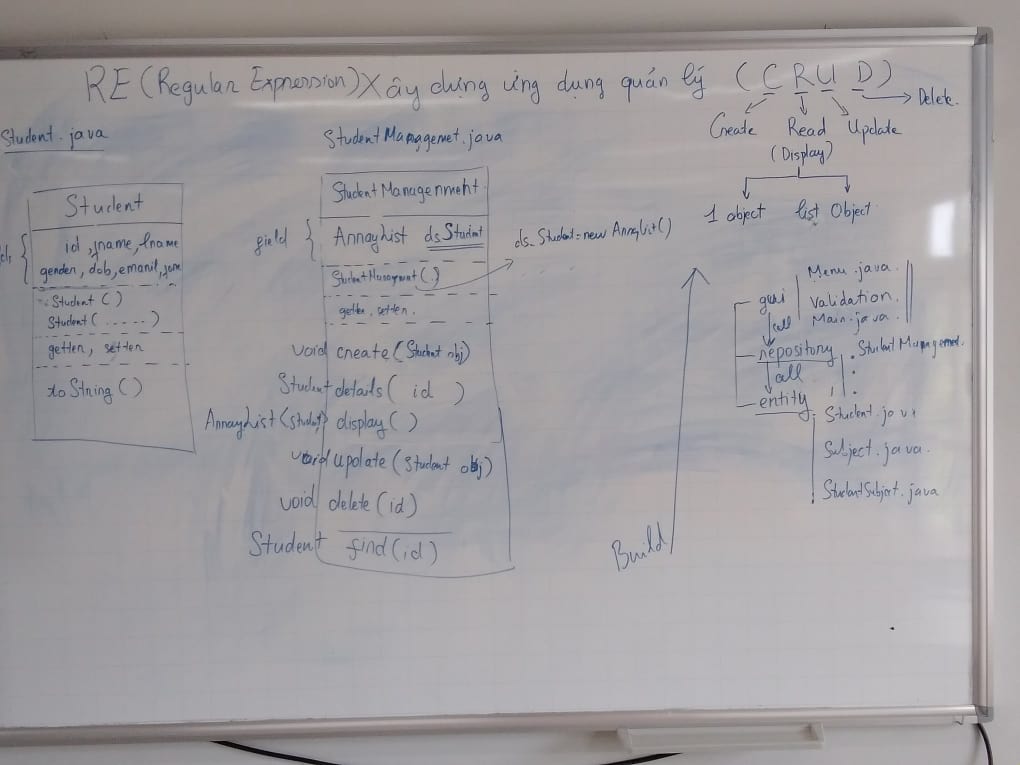 RE (Regular Expression) Xây dựng ứng dụng quản lý (C R U D)
Create Read Update Delete.
(Display)
1 object list Object
Student.java
Student
id, fname, lname
gender, dob, email,
Student ( )
Student ( ..... )
getter, setter
toString ( )
StudentManagemet.java
StudentManagenment
field
ArrayList dsStudent
StudentManagment ( )
ds_Student = new ArrayList()
getter, setter.
void create (Student obj)
Student details ( id )
ArrayList (Student) display ( )
void update (Student obj)
void delete (id)
Student find (id)
Build
gui
Menu.java
Validation.
Main.java.
call
repository
StudentManagemet.
call
entity
Student.java
Subject.java.
StudentSubject.java